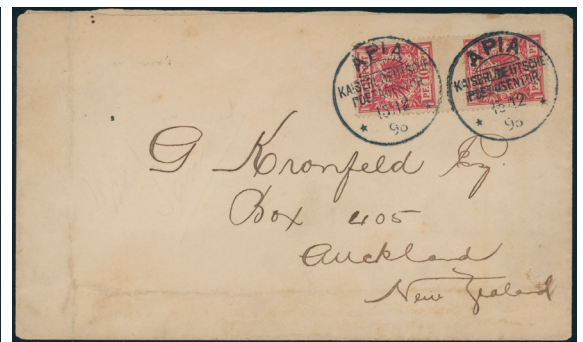 APIA
KAISERL. DEUTSCHE
POSTAGENTUR
15 12
95
APIA
KAISERL. DEUTSCHE
POSTAGENTUR
15 12
95
G Kronfeld Esq.
Box 405
Auckland
New Zealand